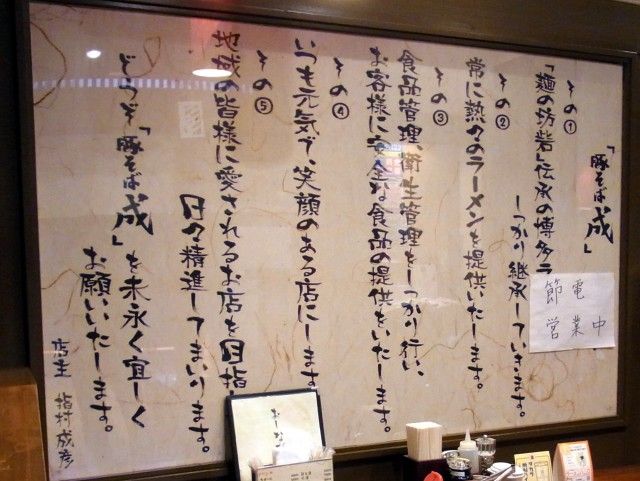 「豚そば成」
その①
「麺の坊砦」伝承の博多ラ
しっかり継承していきます。
その②
常に熱々のラーメンを提供いたします。
その③
食品管理、衛生管理をしっかり行い、
お客様に安全な食品の提供をいたします。
その④
いつも元気で、笑顔のある店にします
その⑤
地域の皆様に愛されるお店を目指し
日々精進してまいります。
どうぞ「豚そば成」を末永く宜しく
お願いいたします。
店主 指村成彦
節電
営業中